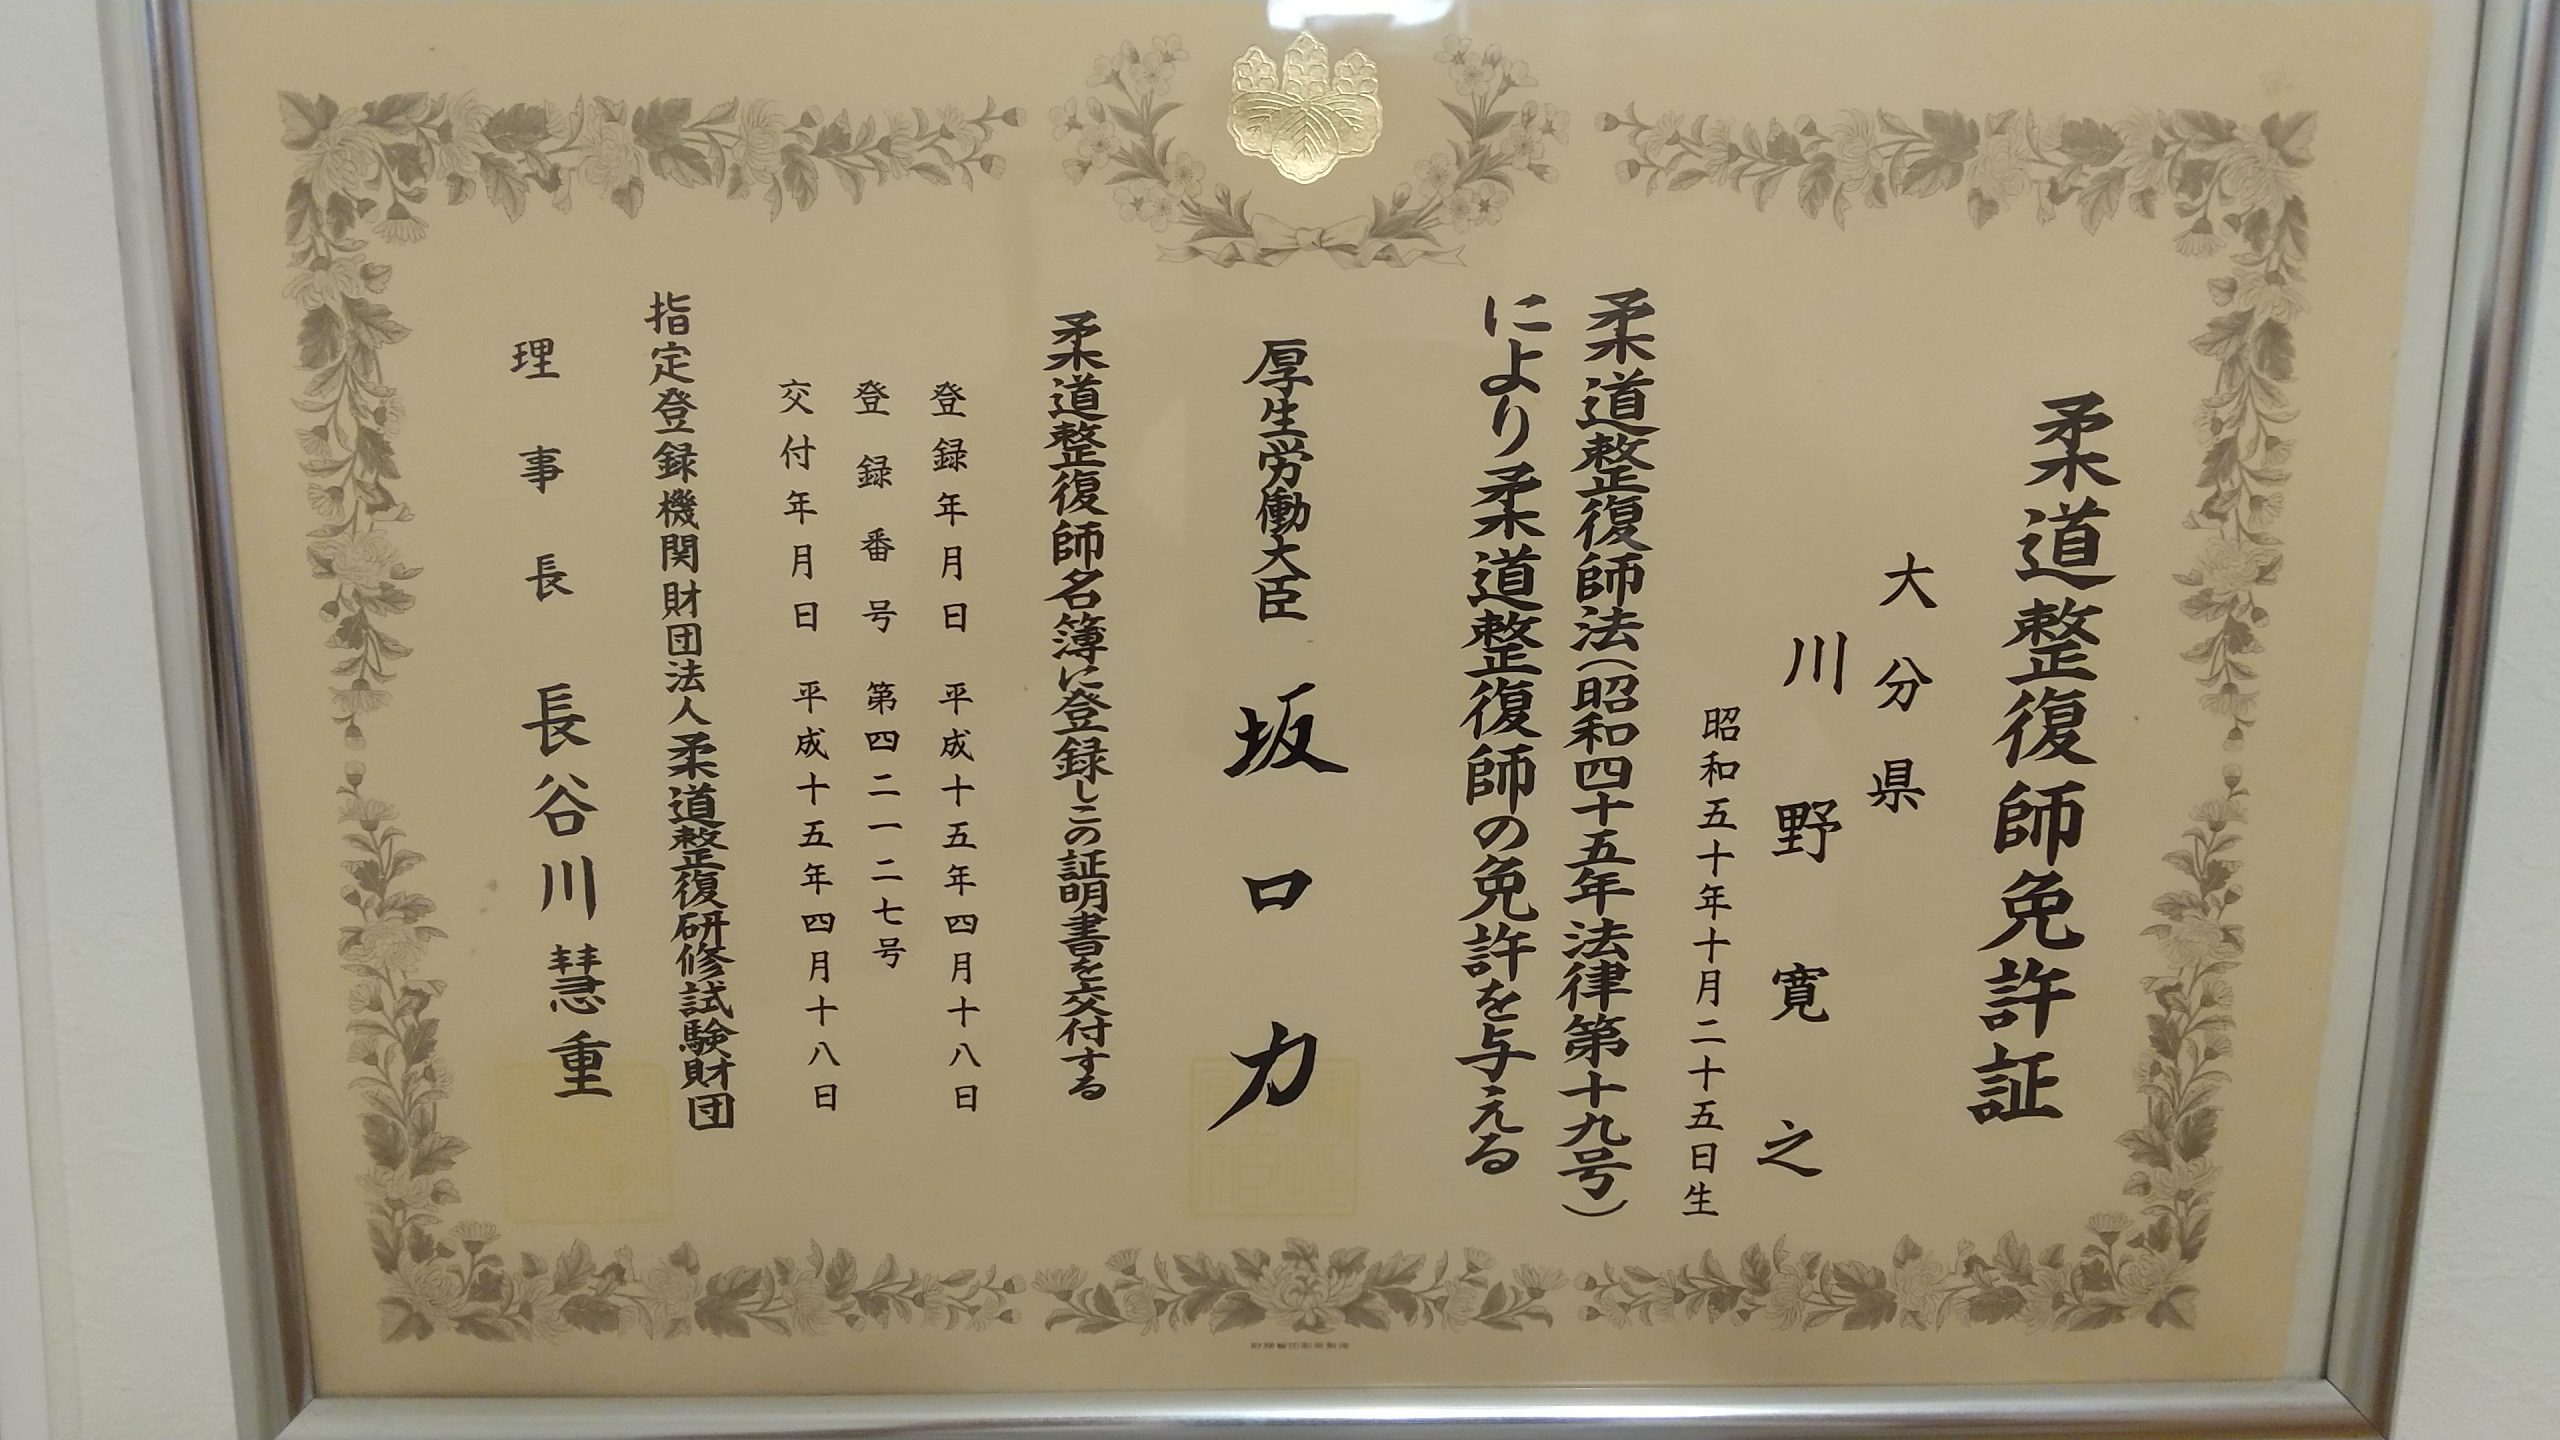 柔道整復師免許証
大分県
川野寛之
昭和五十年十月二十五日生
柔道整復師法(昭和四十五年法律第十九号)
により柔道整復師の免許を与える
厚生労働大臣 坂口力
柔道整復師名簿に登録しこの証明書を交付する
登録年月日 平成十五年四月十八日
登録番号 第四二一二七号
交付年月日 平成十五年四月十八日
指定登録機関財団法人柔道整復研修試験財団
理事長 長谷川慧重